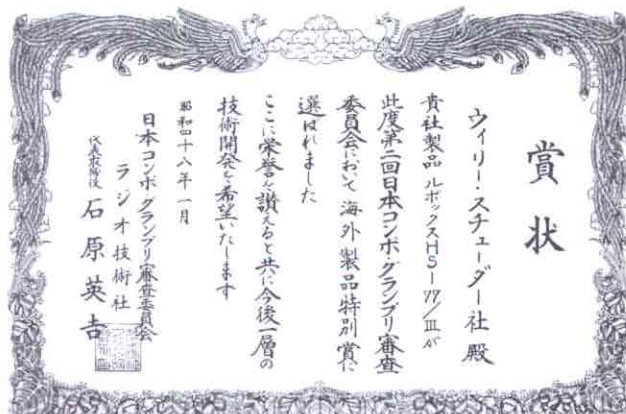 賞状
ウィリー・スチューダー社 殿
貴社製品 ルボックスHS-77/Ⅲが
此度第二回日本コンポ・グランプリ審査
委員会において 海外製品特別賞に
選ばれました
ここに栄誉を讃えると共に今後一層の
技術開発を希望いたします
昭和四十八年一月
日本コンポ・グランプリ審査委員会
ラジオ技術社
代表取締役 石原英吉